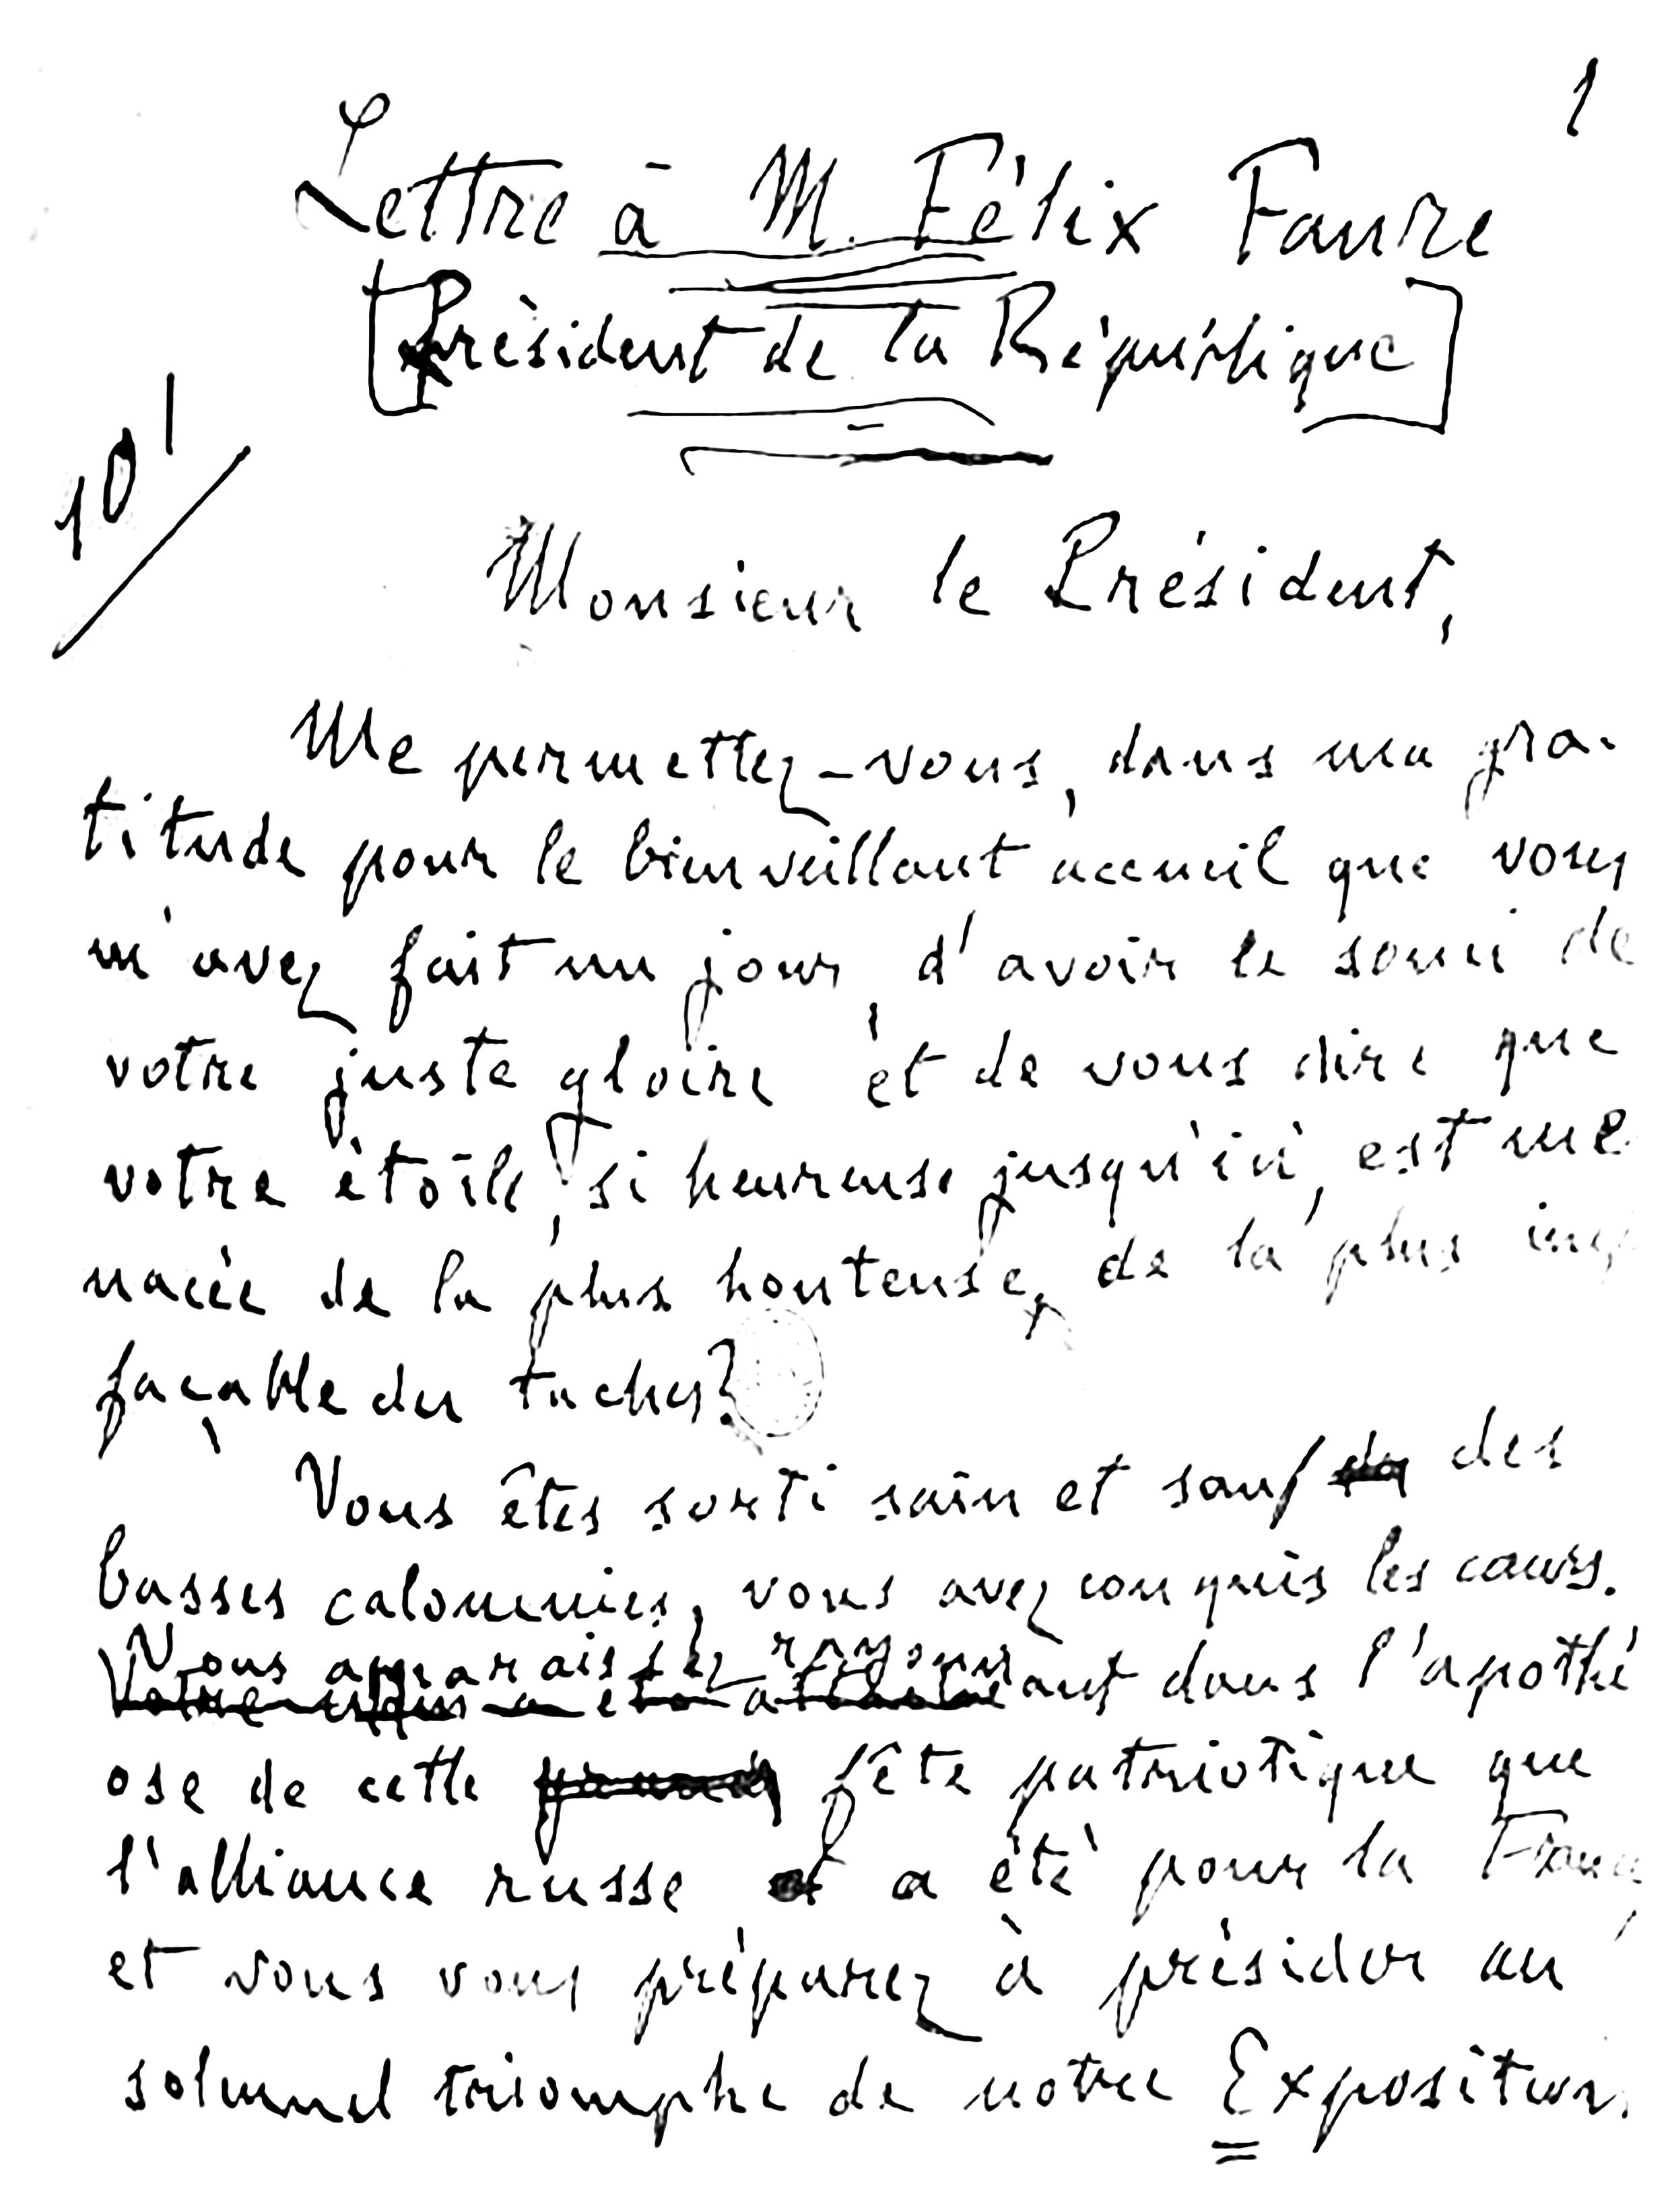 1
Lettre à M. Félix Faure
[Président de la République]
10
Monsieur le Président,
Me permettez-vous, dans ma gra-
titude pour le bienveillant accueil que vous
m'avez fait un jour, d'avoir le souci de
votre juste gloire et de vous dire que
votre étoile, si heureuse jusqu'ici, est me
nacée de la plus honteuse, de la plus inef
façable des taches?
Vous êtes sorti sain et sauf des
basses calomnies, vous avez conquis les cœurs.
Vous apparaissez rayonnant dans l'apothé
ose de cette fête patriotique que
l'alliance russe a été pour la France,
et vous vous préparez à présider au
solennel triomphe de notre Exposition